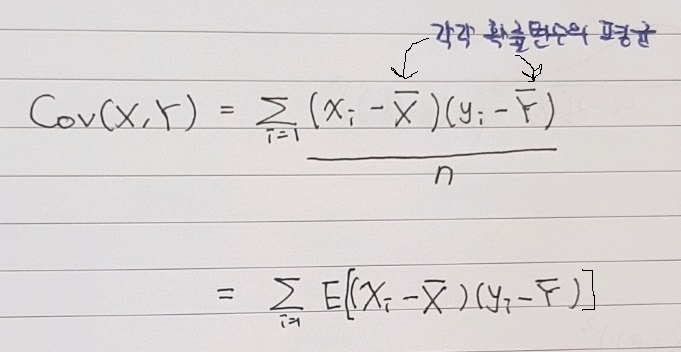 각각 확률변수의 표평균
Cov(X,Y) = Σ_{i=1} (x_i - X̄)(y_i - Ȳ) / n
= Σ_{i=1} E[(x_i - X̄)(y_i - Ȳ)]